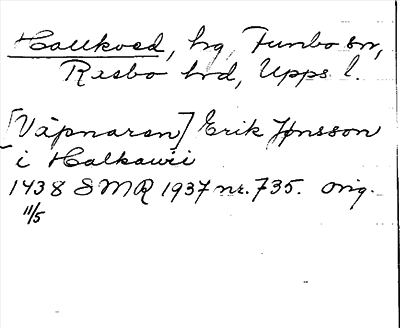 Hallkved, hg, Funbo sn,
Rasbo hd, Upps l.
[Väpnaren] Erik Jønsson
i Halkawii
1438 SMR 1937 nr. 735. orig.
11/5